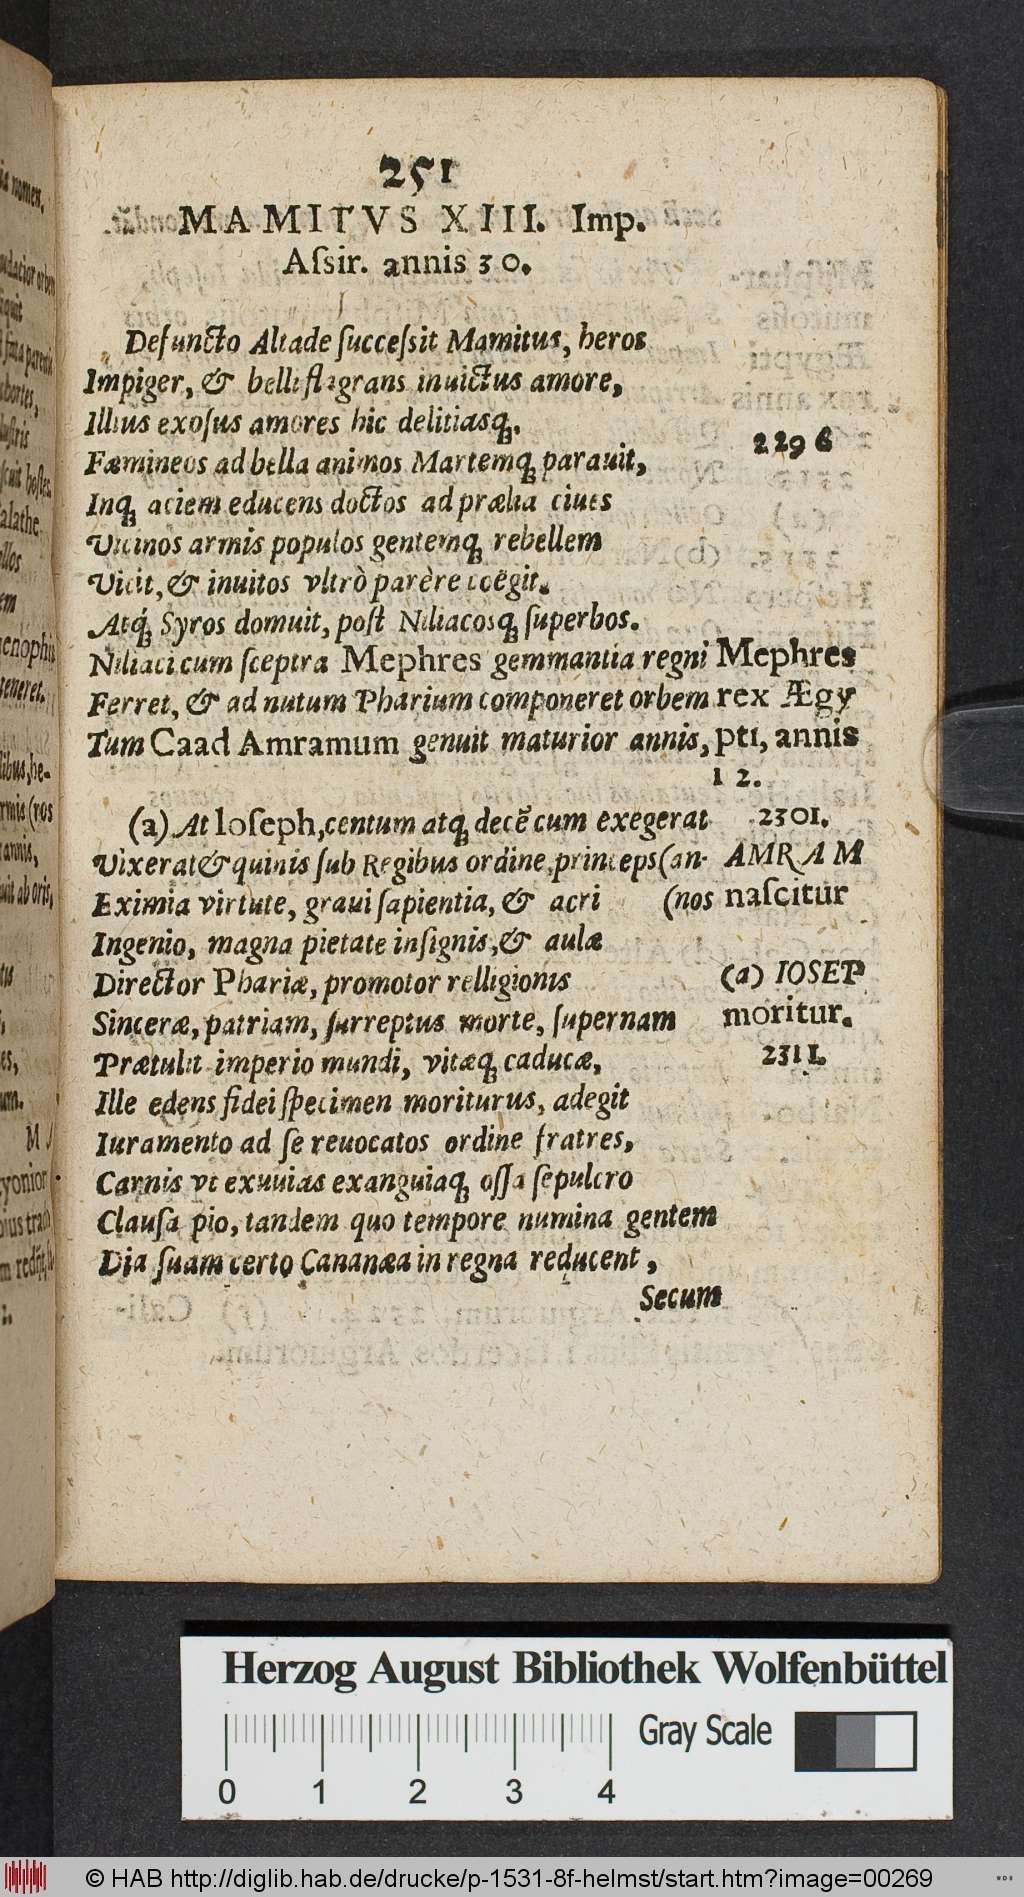 251
MAMITVS XIII. Imp.
Aſsir. annis 30.
Defuncto Altade ſucceſsit Mamitus, heros
Impiger, & belli flagrans inuictus amore,
Illius exoſus amores hic delitiasq́;,
Fæmineos ad bella animos Martemq́; parauit,
2296
Inq́; aciem educens doctos ad prælia ciues
Vicinos armis populos gentemq́; rebellem
Vicit, & inuitos vltrò parère coëgit.
Atq́; Syros domuit, poſt Niliacosq́; ſuperbos.
Niliaci cum ſceptra Mephres gemmantia regni
Ferret, & ad nutum Pharium componeret orbem
Tum Caad Amramum genuit maturior annis,
Mephres
rex Ægy
pti, annis
12.
(a) At Ioſeph, centum atq́; decẽ cum exegerat
Vixerat & quinis ſub Regibus ordine, princeps (an-
Eximia virtute, graui ſapientia, & acri (nos
Ingenio, magna pietate inſignis, & aulæ
Director Phariæ, promotor relligionis
Sinceræ, patriam, ſurreptus morte, ſupernam
Prætulit imperio mundi, vitæq́; caducæ,
2301.
AMRAM
naſcitur
(a) IOSEP
moritur.
2311.
Ille edens fidei ſpecimen moriturus, adegit
Iuramento ad ſe reuocatos ordine fratres,
Carnis vt exuuias exanguiaq́; oſſa ſepulcro
Clauſa pio, tandem quo tempore numina gentem
Dia ſuam certo Cananæa in regna reducent,
Secum
Herzog August Bibliothek Wolfenbüttel
Gray Scale
0 1 2 3 4
© HAB http://diglib.hab.de/drucke/p-1531-8f-helmst/start.htm?image=00269